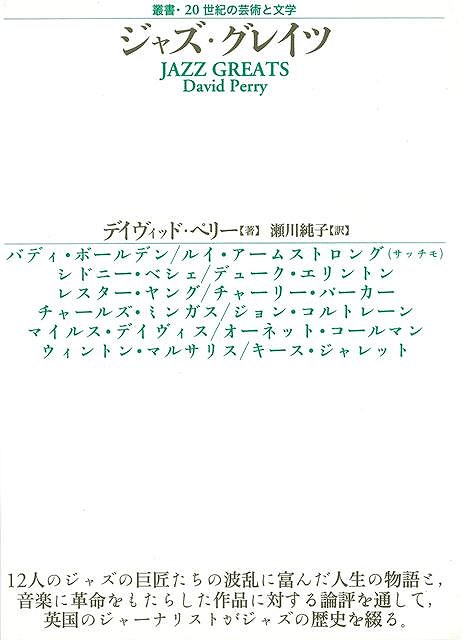 叢書・20世紀の芸術と文学
ジャズ・グレイツ
JAZZ GREATS
David Perry
デイヴィッド・ペリー【著】 瀬川純子【訳】
バディ・ボールデン/ルイ・アームストロング(サッチモ)
シドニー・ベシェ/デューク・エリントン
レスター・ヤング/チャーリー・パーカー
チャールズ・ミンガス/ジョン・コルトレーン
マイルス・デイヴィス/オーネット・コールマン
ウィントン・マルサリス/キース・ジャレット
12人のジャズの巨匠たちの波乱に富んだ人生の物語と,
音楽に革命をもたらした作品に対する論評を通して,
英国のジャーナリストがジャズの歴史を綴る。